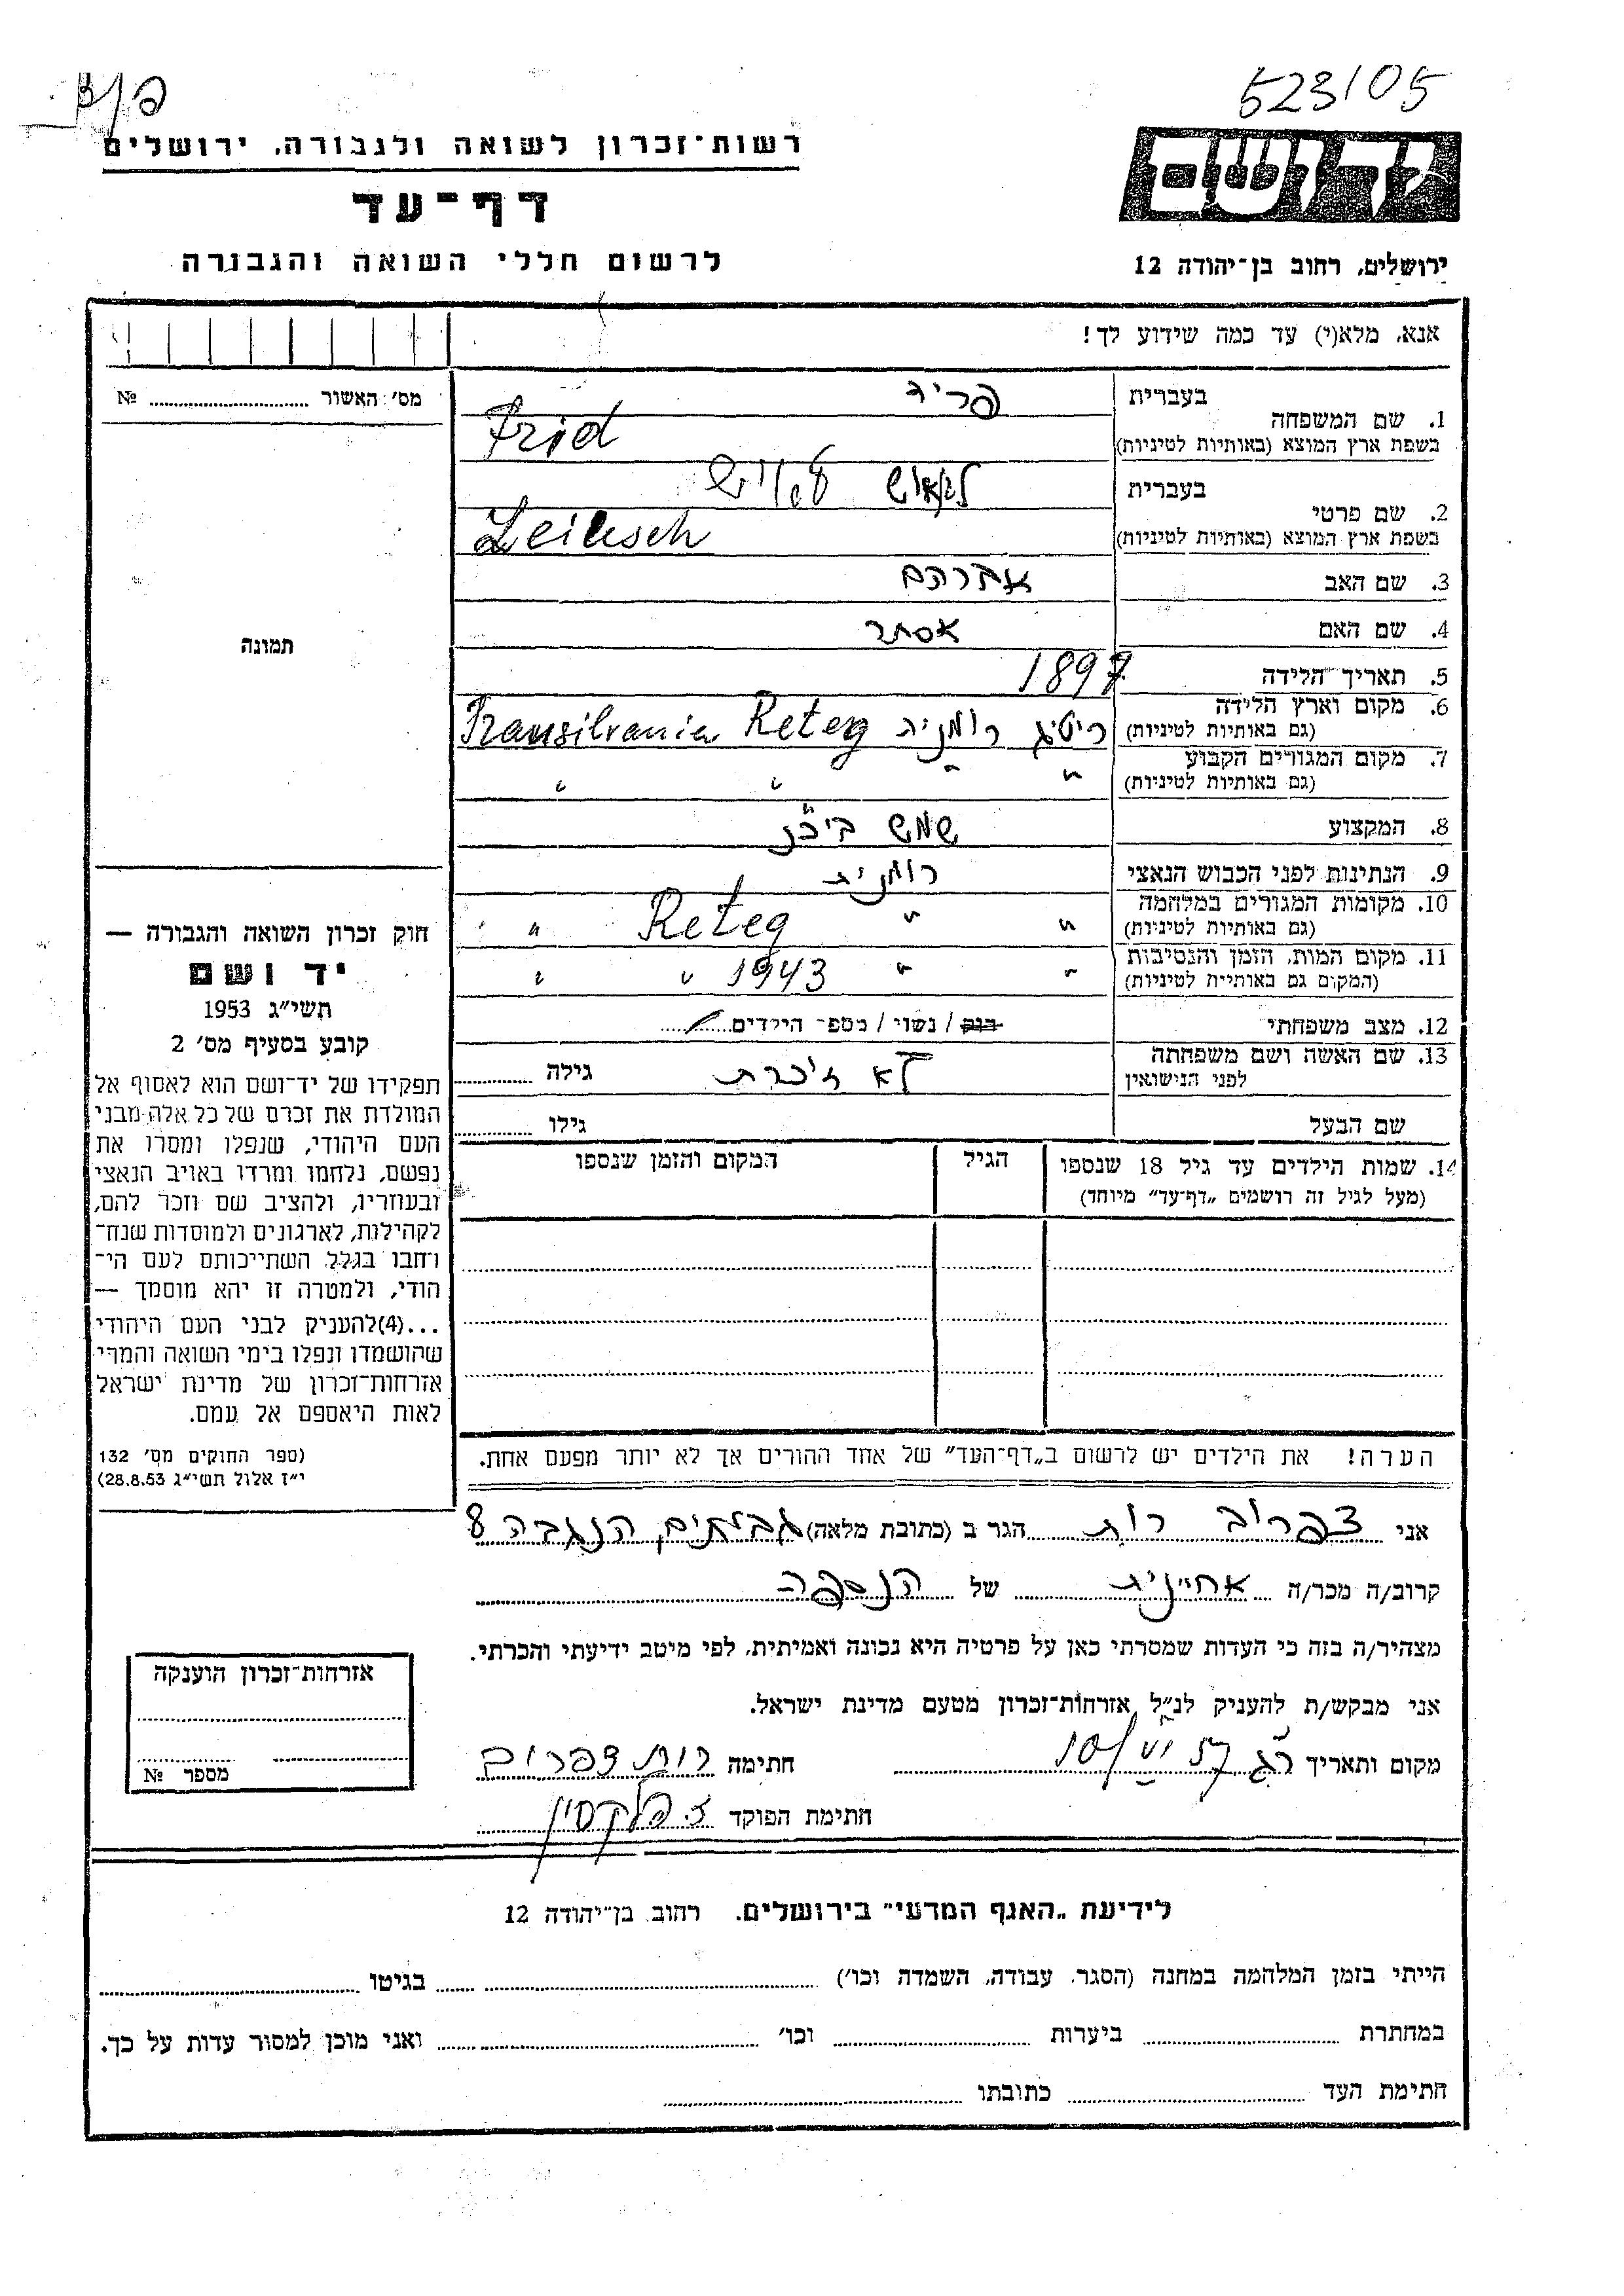 523/05
רשות־זכרון לשואה ולגבורה, ירושלים
דף־עד
לרשום חללי השואה והגבורה
ירושלים, רחוב בן־יהודה 12
אנא, מלא(י) עד כמה שידוע לך!
מס׳ האשור № ........
1. שם המשפחה בעברית פריד
בשפת ארץ המוצא (באותיות לטיניות) Frid
2. שם פרטי בעברית
בשפת ארץ המוצא (באותיות לטיניות)
3. שם האב אברהם
4. שם האם אסתר
5. תאריך הלידה 1897
6. מקום וארץ הלידה (גם באותיות לטיניות) ריטיג רומניה Reteg Transilvania
7. מקום המגורים הקבוע (גם באותיות לטיניות) " " " "
8. המקצוע שמש
9. הנתינות לפני הכבוש הנאצי רומנית
10. מקומות המגורים במלחמה (גם באותיות לטיניות) " " Reteg " "
11. מקום המות, הזמן והנסיבות (המקום גם באותיות לטיניות) " " 1943 " "
12. מצב משפחתי רווק / נשוי / מספר הילדים
13. שם האשה ושם משפחתה לפני הנישואין לא זוכרת גילה ........
שם הבעל גילו ........
14. שמות הילדים עד גיל 18 שנספו
(מעל לגיל זה רושמים „דף־עד״ מיוחד)
הגיל
המקום והזמן שנספו
הערה! את הילדים יש לרשום ב„דף־העד״ של אחד ההורים אך לא יותר מפעם אחת.
תמונה
חוק זכרון השואה והגבורה —
יד ושם
תשי״ג 1953
קובע בסעיף מס׳ 2
תפקידו של יד־ושם הוא לאסוף אל
המולדת את זכרם של כל אלה מבני
העם היהודי, שנפלו ומסרו את
נפשם, נלחמו ומרדו באויב הנאצי
ובעוזריו, ולהציב שם וזכר להם,
לקהילות, לארגונים ולמוסדות שנח־
רבו בגלל השתייכותם לעם הי־
הודי, ולמטרה זו יהא מוסמך —
...(4) להעניק לבני העם היהודי
שהושמדו ונפלו בימי השואה והמרי
אזרחות־זכרון של מדינת ישראל
לאות היאספם אל עמם.
(ספר החוקים מס׳ 132
י״ז אלול תשי״ג 28.8.53)
אני צפרוב רות הגר ב (כתובת מלאה) גבעתיים הנגבה 8
קרוב/ה מכר/ה אחיינית של הנספה
מצהיר/ה בזה כי העדות שמסרתי כאן על פרטיה היא נכונה ואמיתית, לפי מיטב ידיעתי והכרתי.
אני מבקש/ת להעניק לנ״ל אזרחות־זכרון מטעם מדינת ישראל.
מקום ותאריך ר״ג 10/VI 57 חתימה רות צפרוב
חתימת הפוקד
אזרחות־זכרון הוענקה
מספר №
לידיעת „האגף המדעי״ בירושלים, רחוב בן־יהודה 12
הייתי בזמן המלחמה במחנה (הסגר, עבודה, השמדה וכו׳) ........ בגיטו ........
במחתרת ........ ביערות ........ וכו׳ ........ ואני מוכן למסור עדות על כך.
חתימת העד ........ כתובתו ........